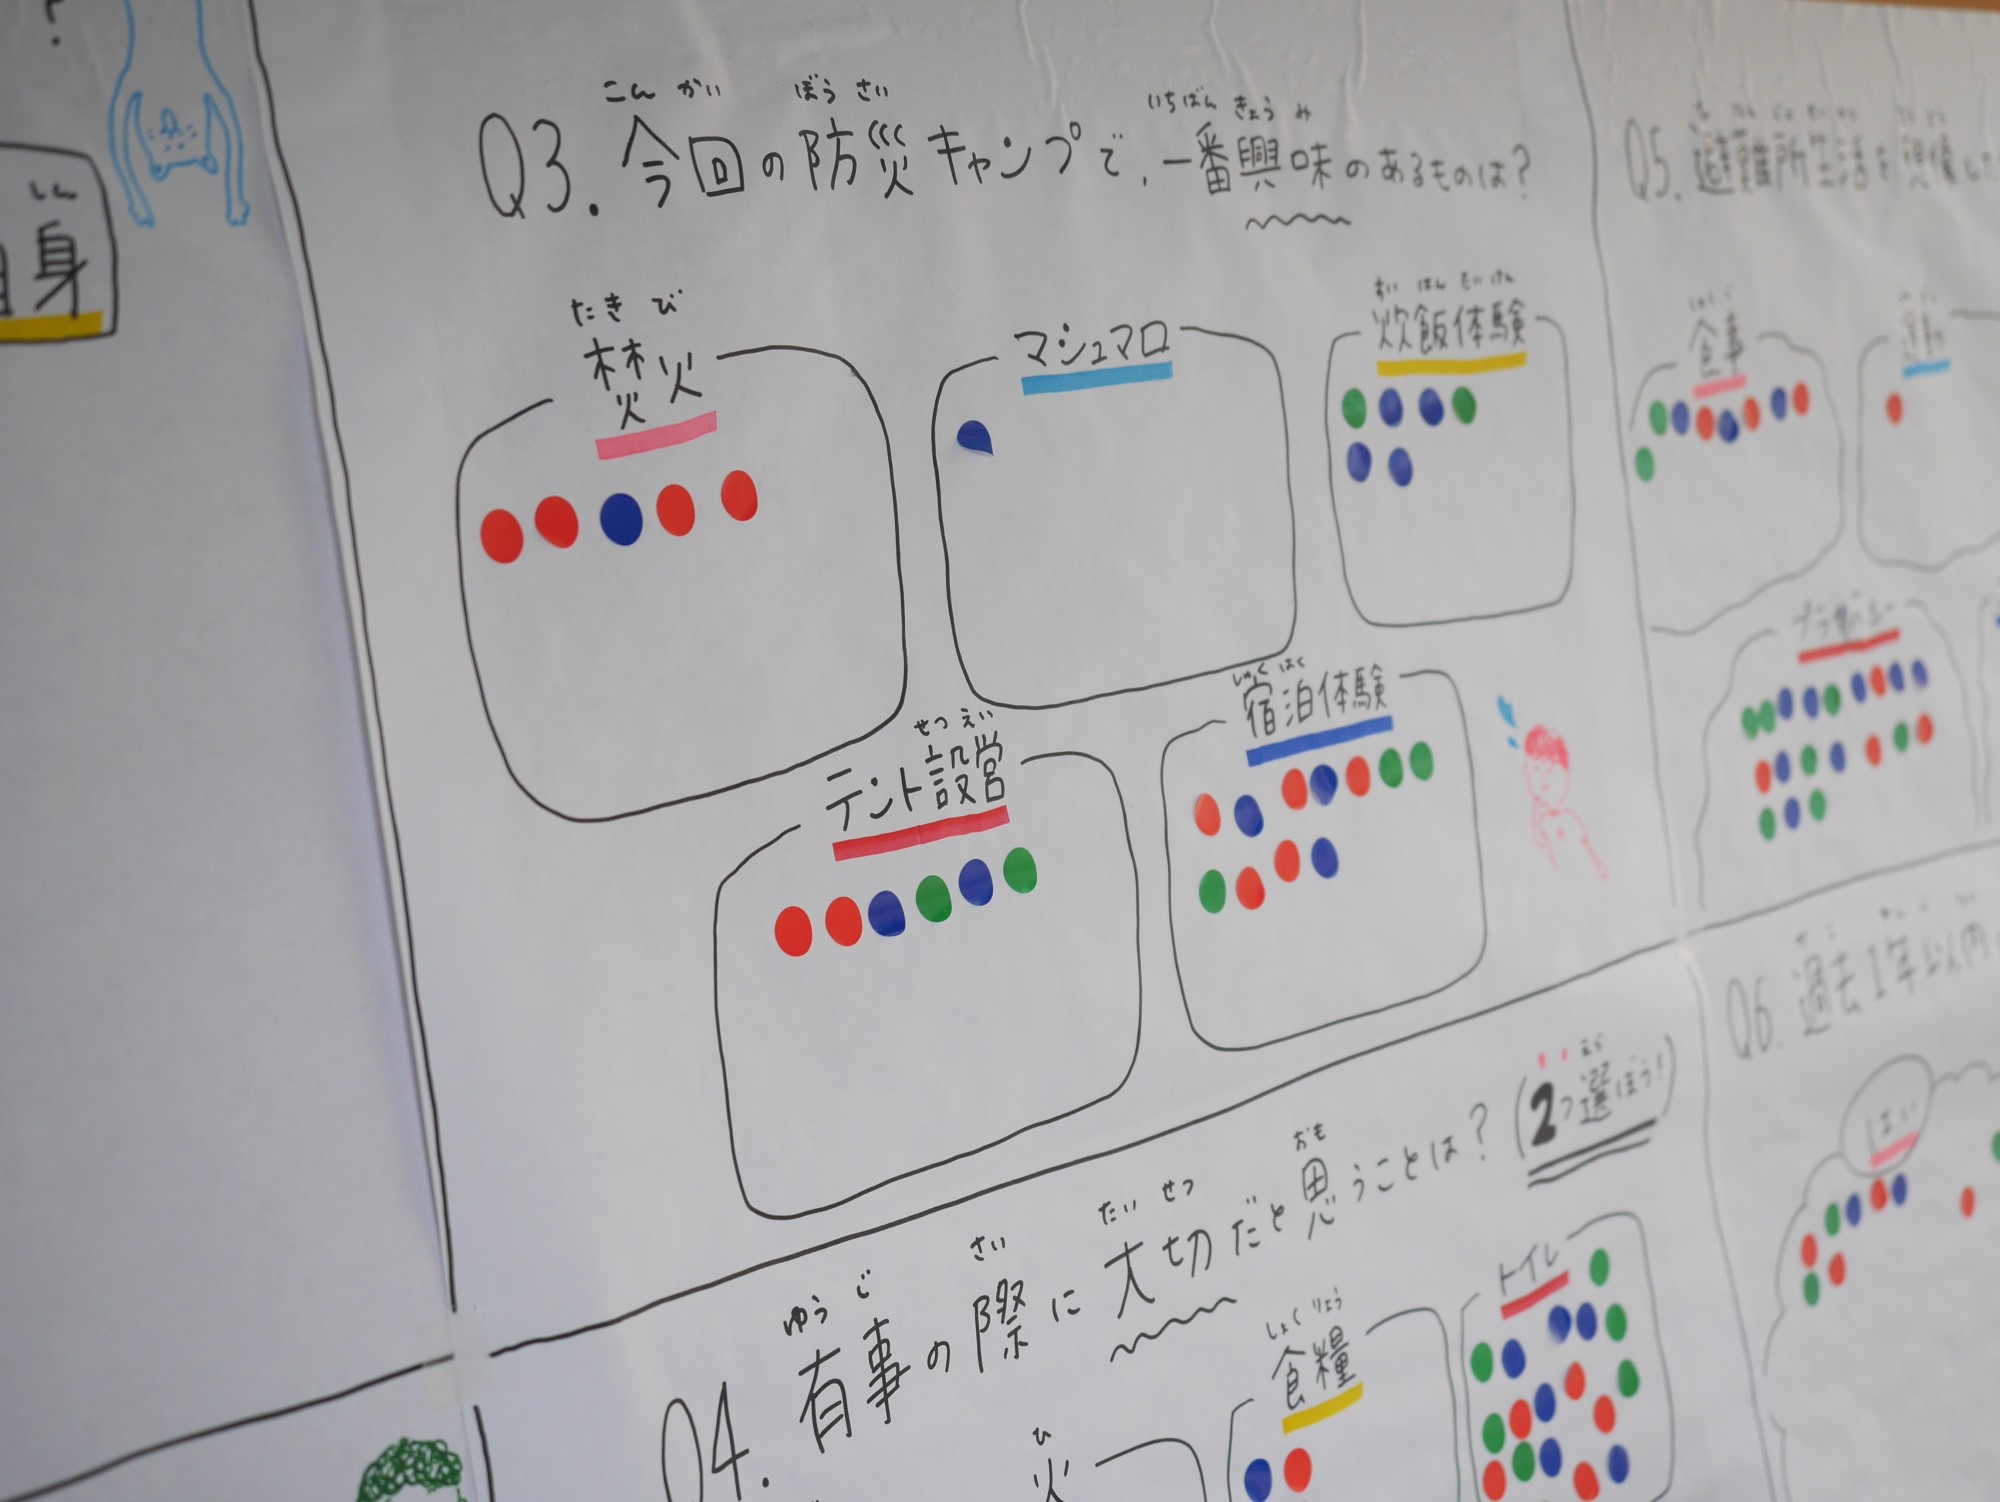 ?
しん
身
こんかい ぼうさい いちばん きょうみ
Q3. 今回の防災キャンプで、一番興味のあるものは?
たきび
焚火
マシュマロ
すいはんたいけん
炊飯体験
せつえい
テント設営
しゅくはく
宿泊体験
ゆうじ さい たいせつ おも えら
Q4. 有事の際に大切だと思うことは? (2つ選ぼう!)
ひ
火
しょくりょう
食糧
トイレ
Q5. 避難所生活を想像した
食事
プライバシー
Q6. 過去1年以内
はい